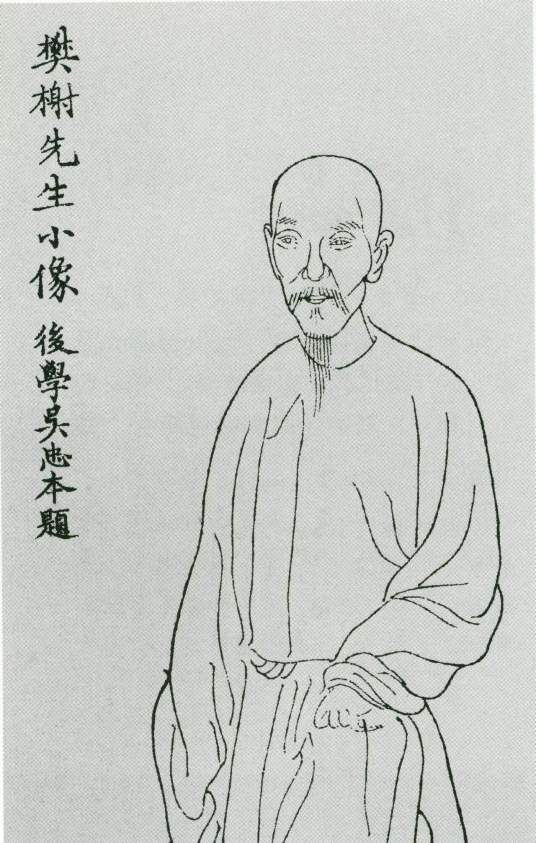 樊榭先生小像 後學吳忠本題